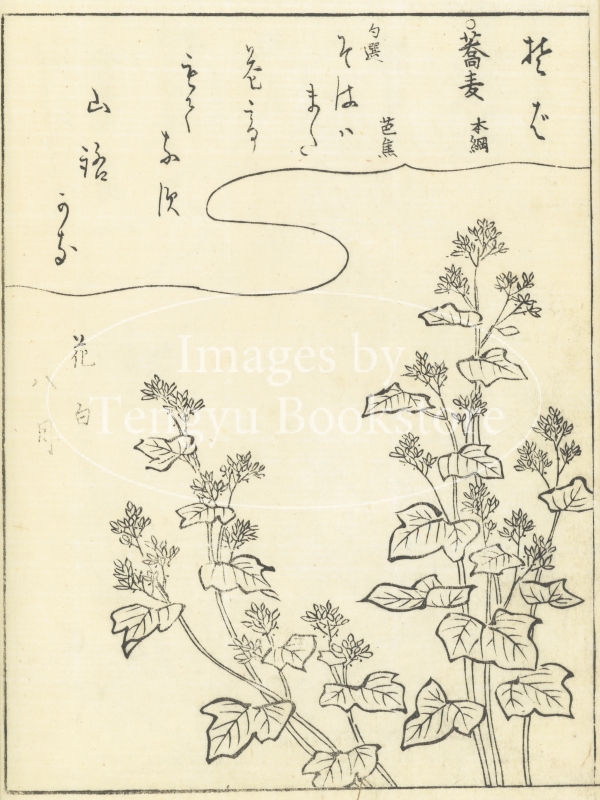 そば
蕎麦 本綱
句選 芭焦
そばハ
まだ
花で
もて
なす
山路
かな
花白
八月
Images by
Tengyu Bookstore